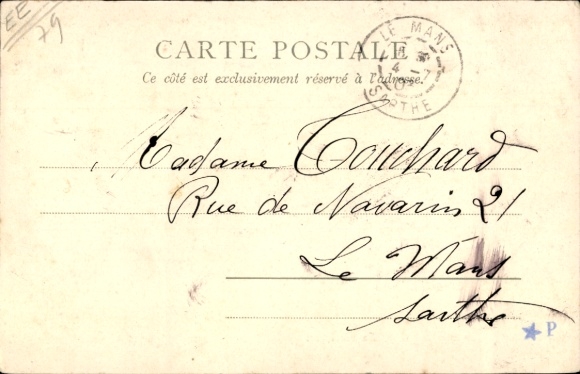 EE
79
CARTE POSTALE
Ce côté est exclusivement réservé à l'adresse.
LE MANS
SARTHE
Madame Touchard
Rue de Navarin 21
Le Mans
Sarthe
P